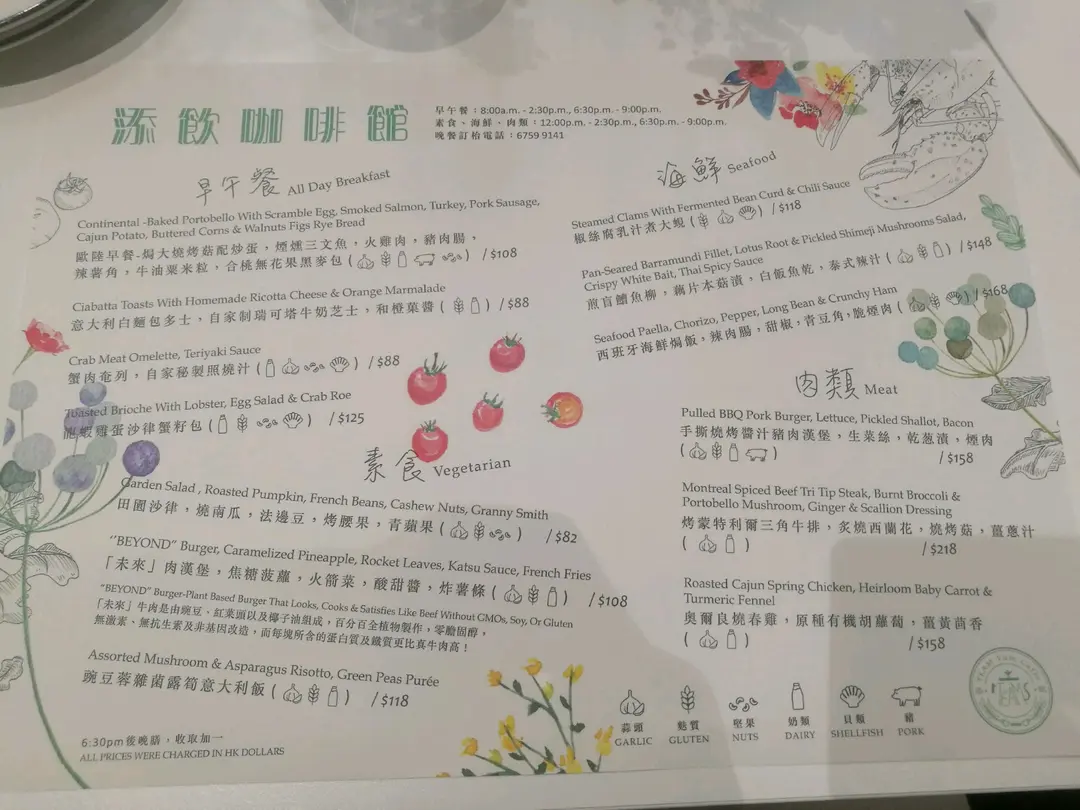 添飲咖啡館
早午餐：8:00a.m. - 2:30p.m., 6:30p.m. - 9:00p.m.
素食、海鮮、肉類：12:00p.m. - 2:30p.m., 6:30p.m. - 9:00p.m.
晚餐訂枱電話：6759 9141
早午餐 All Day Breakfast
Continental -Baked Portobello With Scramble Egg, Smoked Salmon, Turkey, Pork Sausage,
Cajun Potato, Buttered Corns & Walnuts Figs Rye Bread
歐陸早餐-焗大燒烤菇配炒蛋，煙燻三文魚，火雞肉，豬肉腸，
辣薯角，牛油粟米粒，合桃無花果黑麥包 ( ) / $108
Ciabatta Toasts With Homemade Ricotta Cheese & Orange Marmalade
意大利白麵包多士，自家制瑞可塔牛奶芝士，和橙菓醬 ( ) / $88
Crab Meat Omelette, Teriyaki Sauce
蟹肉奄列，自家秘製照燒汁 ( ) / $88
Toasted Brioche With Lobster, Egg Salad & Crab Roe
龍蝦雞蛋沙律蟹籽包 ( ) / $125
素食 Vegetarian
Garden Salad , Roasted Pumpkin, French Beans, Cashew Nuts, Granny Smith
田園沙律，燒南瓜，法邊豆，烤腰果，青蘋果 ( ) / $82
"BEYOND" Burger, Caramelized Pineapple, Rocket Leaves, Katsu Sauce, French Fries
「未來」肉漢堡，焦糖菠蘿，火箭菜，酸甜醬，炸薯條 ( ) / $108
"BEYOND" Burger-Plant Based Burger That Looks, Cooks & Satisfies Like Beef Without GMOs, Soy, Or Gluten
「未來」牛肉是由豌豆、紅菜頭以及椰子油組成，百分百全植物製作，零膽固醇，
無激素、無抗生素及非基因改造，而每塊所含的蛋白質及鐵質更比真牛肉高！
Assorted Mushroom & Asparagus Risotto, Green Peas Purée
豌豆蓉雜菌露筍意大利飯 ( ) / $118
6:30pm後晚膳，收取加一
ALL PRICES WERE CHARGED IN HK DOLLARS
海鮮 Seafood
Steamed Clams With Fermented Bean Curd & Chili Sauce
椒絲腐乳汁煮大蜆 ( ) / $118
Pan-Seared Barramundi Fillet, Lotus Root & Pickled Shimeji Mushrooms Salad,
Crispy White Bait, Thai Spicy Sauce
煎盲鰽魚柳，藕片本菇漬，白飯魚乾，泰式辣汁 ( ) / $148
Seafood Paella, Chorizo, Pepper, Long Bean & Crunchy Ham
西班牙海鮮焗飯，辣肉腸，甜椒，青豆角，脆煙肉 ( ) / $168
肉類 Meat
Pulled BBQ Pork Burger, Lettuce, Pickled Shallot, Bacon
手撕燒烤醬汁豬肉漢堡，生菜絲，乾葱漬，煙肉
( ) / $158
Montreal Spiced Beef Tri Tip Steak, Burnt Broccoli &
Portobello Mushroom, Ginger & Scallion Dressing
烤蒙特利爾三角牛排，炙燒西蘭花，燒烤菇，薑蔥汁
( ) / $218
Roasted Cajun Spring Chicken, Heirloom Baby Carrot &
Turmeric Fennel
奧爾良燒春雞，原種有機胡蘿蔔，薑黃茴香
( ) / $158
蒜頭 麩質 堅果 奶類 貝類 豬
GARLIC GLUTEN NUTS DAIRY SHELLFISH PORK